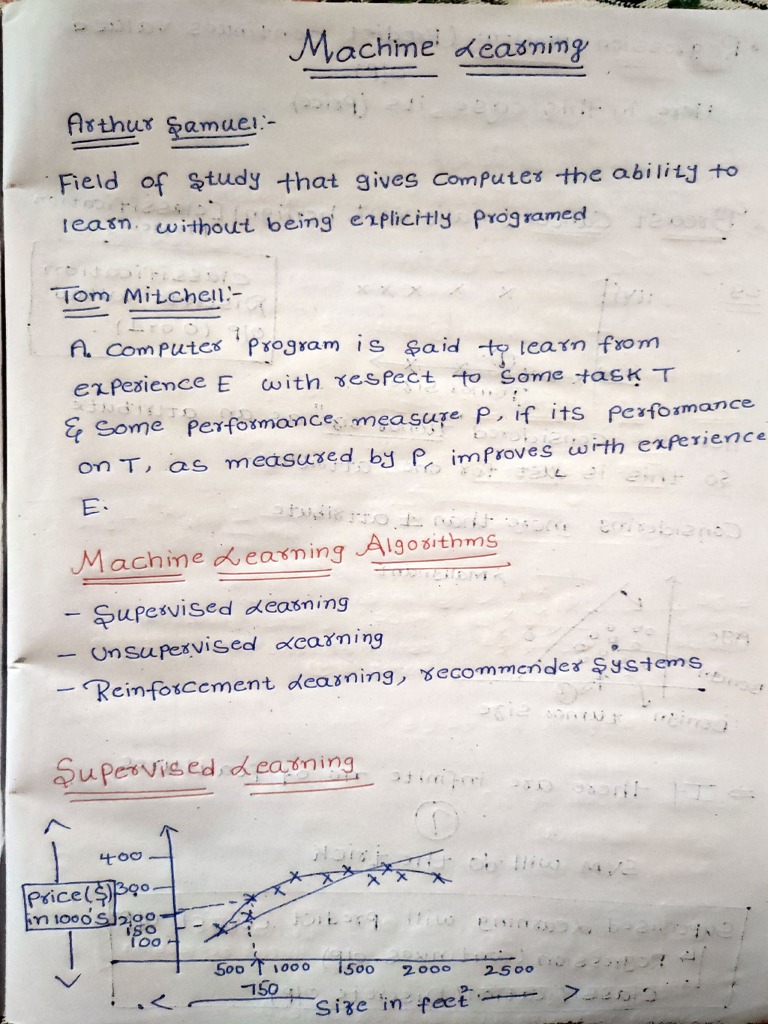 Machine Learning
Arthur Samuel:-
Field of study that gives computer the ability to
learn without being explicitly programed
Tom Mitchell:-
A computer program is said to learn from
experience E with respect to some task T
& some performance measure P, if its performance
on T, as measured by P, improves with experience
E.
Machine Learning Algorithms
- Supervised Learning
- Unsupervised Learning
- Reinforcement Learning, recommender systems
Supervised Learning
400
300
Price($)
in 1000's
200
150
100
500 1000 1500 2000 2500
750
Size in feet²